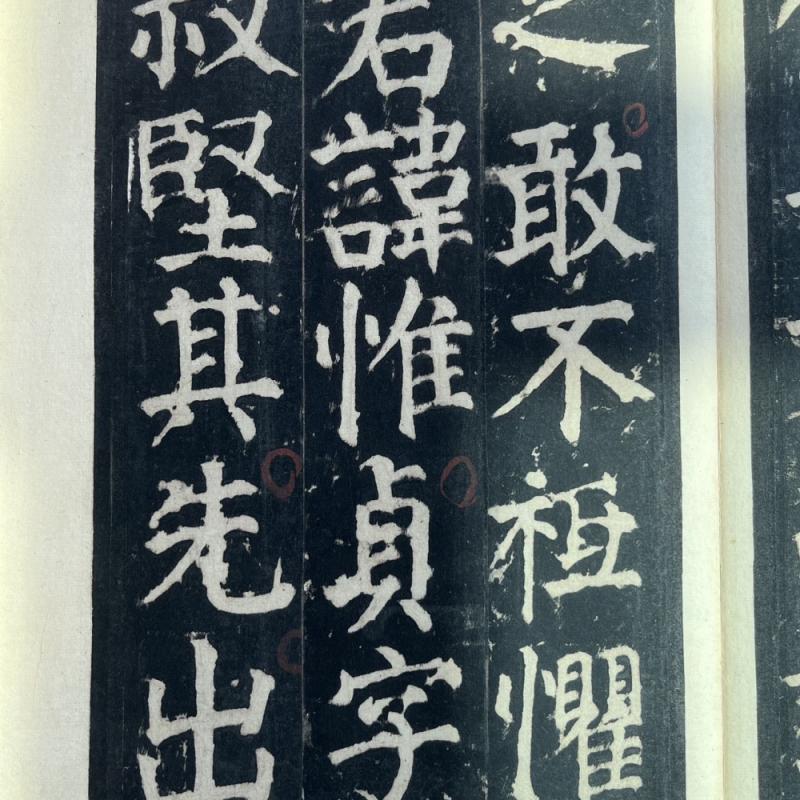 之敢不祗懼
君諱惟貞字
叔堅其先出